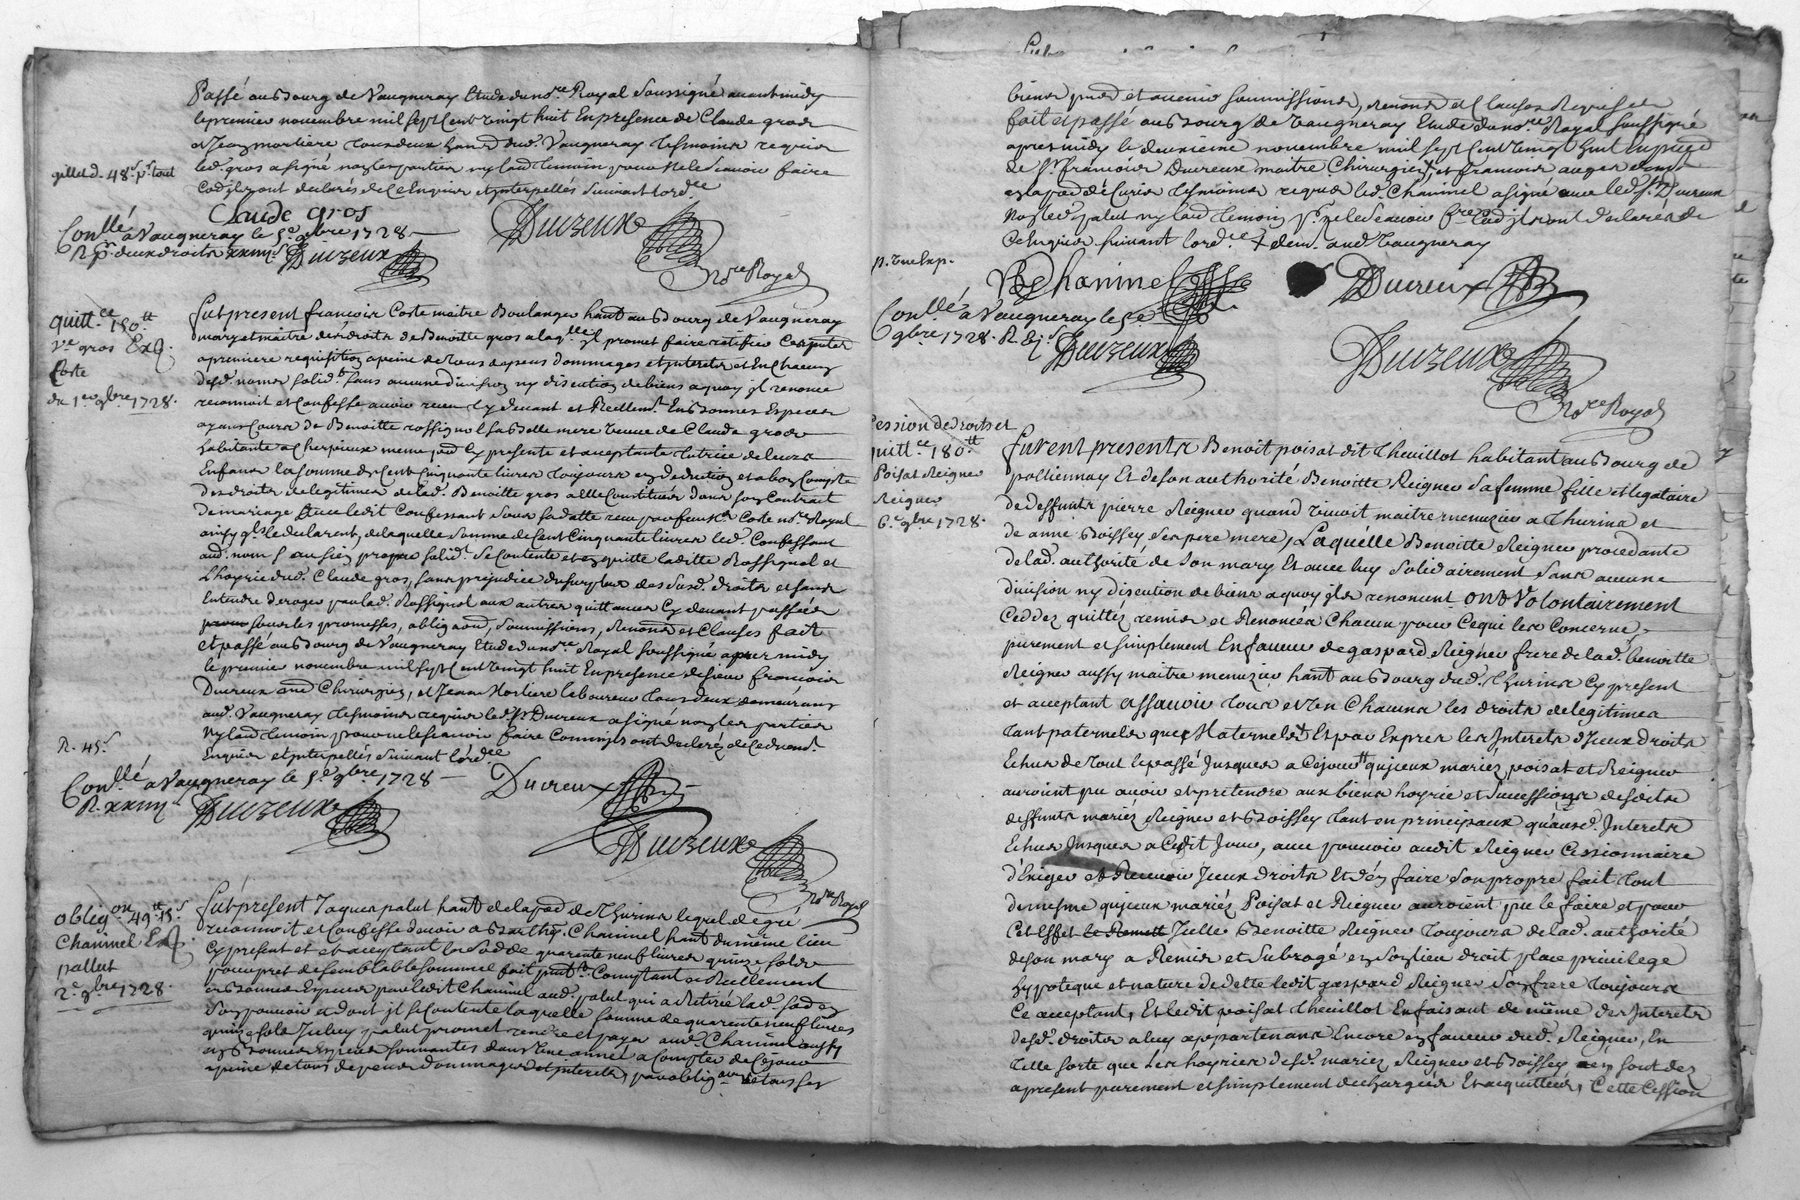 Passé au Bourg de Vaugneray Etude du no.re Royal Soussigné avant midy
le premier novembre mil sept Cent vingt huit En presence de Claude gros
et Jean mortiere tous deux hant dud. Vaugneray tesmoins requis
led. gros a signé non les parties ny led temoin pour ne le scavoir faire
gillet d. 48s pr. tout
Claude gros
Duizeux
Con.llé a Vaugneray le 5e 9bre 1728
Duizeux
No.re Royal
quitt.ce 150.tt
Ve gros
Coste
du 1er 9bre 1728.
fut present francois Coste maitre Boulanger hant au Bourg de Vaugneray
mary et maitre des droits de Benoitte gros a laq.lle jl promet faire ratifier
a premiere requisition a peine de tous depens dommages et jnterets et En Chacun
desd. noms solid.t sans aucune division ny discution de biens a quoy jl renonce
reconnoit et Confesse avoir receu Cy devant et Reellem.t En Bonnes Especes
ayant Cours de Benoitte rossignol sa Belle mere veuve de Claude gros
habitante a Cherpieux meme pnt Cy presente et acceptante tutrice de leurs
Enfans la somme de Cent Cinquante livres toujours en deduction et a bon Compte
des droits de legitimes de lad. Benoitte gros a elle Constitués dans son Contrat
de mariage avec ledit Confessant sous sa datte receu par feu Coste no.re Royal
ainsy qls le declarent, de laquelle somme de Cent Cinquante livres led. Confessant
aud. nom Sans propre solid. se Contente et en quitte laditte Rossignol et
L'hoyrie dud. Claude gros, sans prejudice du surplus des susd. droits et sans
Entendre deroger par lad. Rossignol aux autres quittances Cy devant passées
sous les promesses, obligaõns, soumissions, Renonõns et Clauses fait
et passé au Bourg de Vaugneray Etude du no.re Royal soussigné apres midy
le premier novembre mil sept Cent vingt huit En presence de sieur francois
Ducreux Chirurgien, et Jean Mortiere laboureur tous deux demeurans
aud. Vaugneray tesmoins requis led. Sr Ducreux a signé non les parties
ny led temoin pour ne le scavoir faire Comm jls ont declaré
Enquis et jnterpellés suivant l'ord.ce
R. 45s
Con.llé a Vaugneray le 5e 9bre 1728
Duizeux
Ducreux
Duizeux
No.re Royal
oblig.on 49tt 15s
Chaninel
pallut
2e 9bre 1728.
fut present Jaques palut hant de la par de Thurins lequel de gré
reconnoit et Confesse devoir a Barthy. Chaninel hant du même lieu
Cy present et acceptant la somme de quarente neuf livres quinze sols
pour pret de semblable somme fait Comptant et Reellement
en Bonnes Especes par ledit Chaninel aud. palut qui a Retirée
pouvoir et dont jl se Contente laquelle somme de quarente neuf livres
quinze sols Jceluy palut promet rendre et payer aud. Chaninel aussy
en Bonnes Especes sonnantes dans une année a Compter de Cejour
a peine de tous depens dommages et jnterets, par oblig.on de tous ses
biens pnts et avenir soumissions, renonõns et Clauses Requises
fait et passé au Bourg de Vaugneray Etude du no.re Royal soussigné
apres midy le deuxieme novembre mil sept Cent vingt huit
de Sr francois Ducreux maitre Chirurgien, et francois
tesmoins requis led. Chaninel a signé avec led. Sr. Ducreux
Non led. palut ny led temoin pr. ne le scavoir faire
Enquis suivant l'ord.ce + dem. aud Vaugneray
By Chaninel
Ducreux
Con.llé a Vaugneray le 5e
9bre 1728.
Duizeux
Duizeux
No.re Royal
Cession de droits et
quitt.ce 180.tt
Poisat Reigner
Reigner
6.e 9bre 1728.
furent presents Benoit poisat dit Theuillot habitant au Bourg de
pollionnay Et de son authorité Benoitte Reigner sa femme fille et legataire
de deffunts pierre Reigner quand vivoit maitre menuzier a Thurins et
de anne Boissey ses pere mere, Laquelle Benoitte Reigner procedante
de lad. authorité de son mary Et avec luy solidairement sans aucune
division ny discution de biens a quoy jls renoncent ont volontairement
Cedde, quitté, remis et Renoncés Chacun pour Ce qui les Concerne,
purement et simplement En faveur de gaspard Reigner frere de lad. benoitte
Reigner aussy maitre menuzier hant au Bourg dud. Thurins Cy present
et acceptant assavoir tous et un Chacuns les droits de legitimes
tant paternels que Maternels Et par Exprés les jnterets d'jceux droits
Echus de tout le passé jusques a Cejour quj ceux mariez poisat et Reigner
auroient pu avoir et pretendre aux biens hoyrie et succession desdits
deffunts mariéz Reigner et Boissey tant en principaux qu'ausd. jnterets
Echus jusques a Cedit jour, avec pouvoir audit Reigner Cessionnaire
d'exiger et Recevoir jceux droits Et d'en faire son propre fait tout
de mesme qu jceux mariéz Poisat et Reigner auroient pu le faire et pour
Cet Effet le Remett Jcelle Benoitte Reigner toujours de lad. authorité
de son mary a Remis et subrogé en son lieu droit place privilege
hypoteque et nature de dette ledit gaspard Reigner son frere toujours
Ce acceptant, Et ledit poisat Theuillot En faisant de même des jnterets
desd. droits a luy appartenans Encore en faveur dud. Reigner, En
telle sorte que les hoyries desd. mariez Reigner et Boissey en sont dez
apresent purement et simplement dechargées Et acquittées, Cette Cession